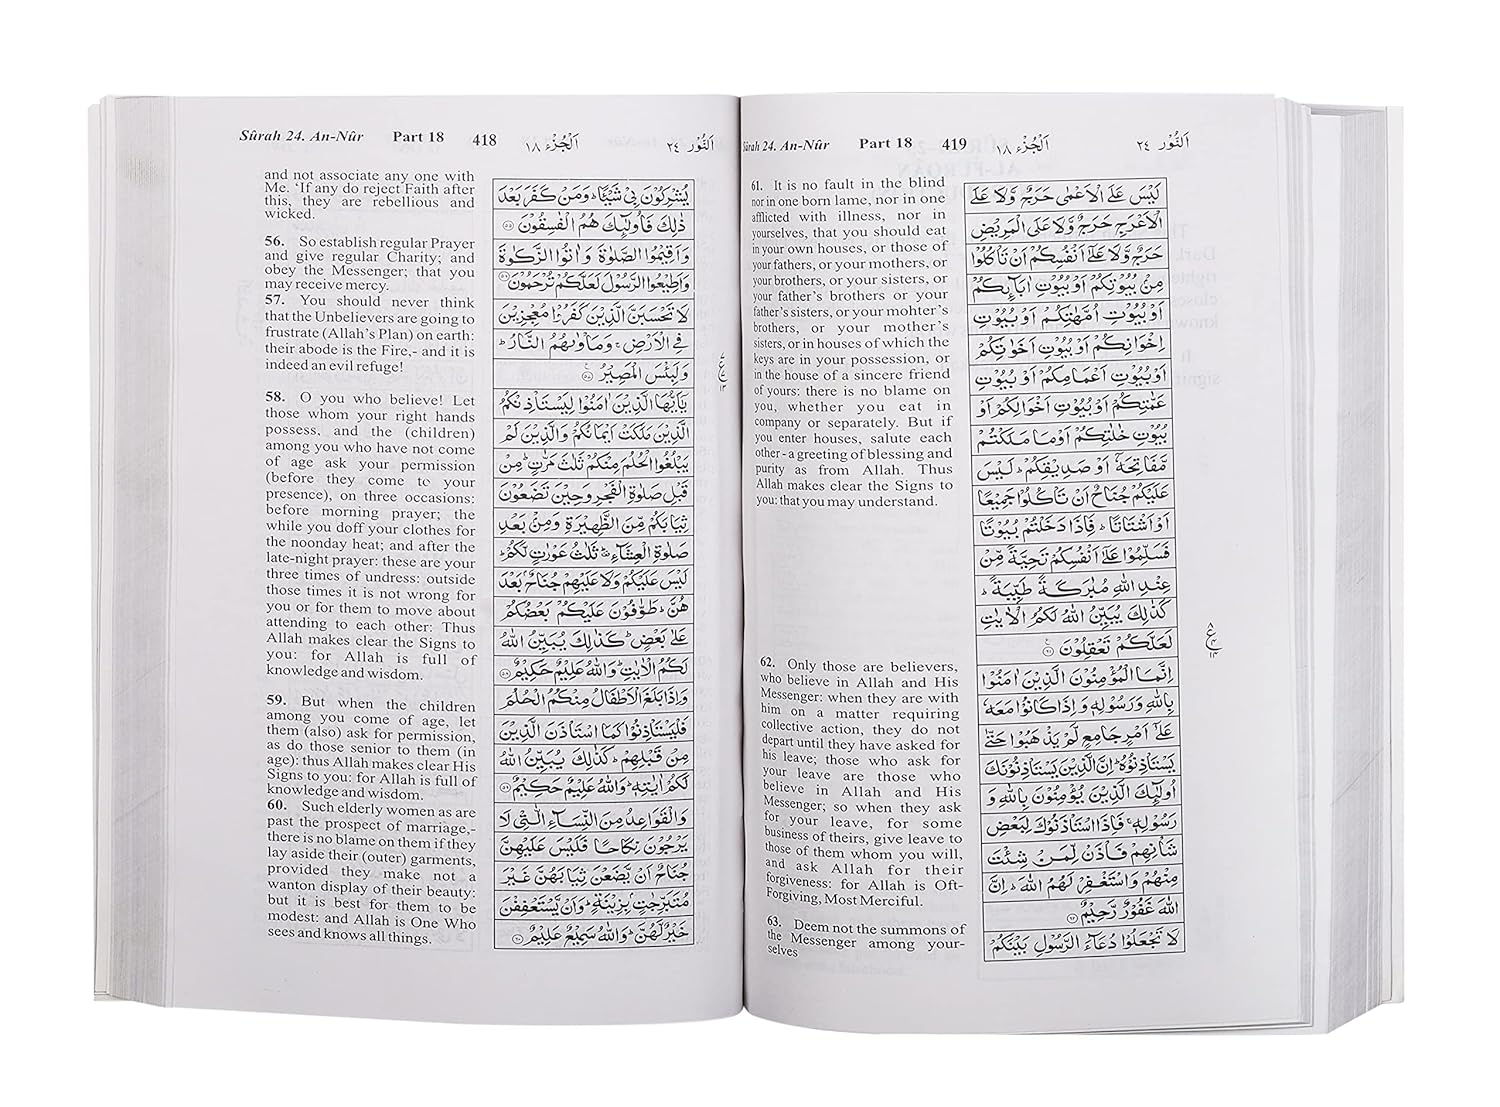 Sûrah 24. An-Nûr Part 18 418 اَلْجُزْء ١٨ اَلنُّوْر ٢٤
and not associate any one with
Me. ‘If any do reject Faith after
this, they are rebellious and
wicked.
56. So establish regular Prayer
and give regular Charity; and
obey the Messenger; that you
may receive mercy.
57. You should never think
that the Unbelievers are going to
frustrate (Allah’s Plan) on earth:
their abode is the Fire,- and it is
indeed an evil refuge!
58. O you who believe! Let
those whom your right hands
possess, and the (children)
among you who have not come
of age ask your permission
(before they come to your
presence), on three occasions:
before morning prayer; the
while you doff your clothes for
the noonday heat; and after the
late-night prayer: these are your
three times of undress: outside
those times it is not wrong for
you or for them to move about
attending to each other: Thus
Allah makes clear the Signs to
you: for Allah is full of
knowledge and wisdom.
59. But when the children
among you come of age, let
them (also) ask for permission,
as do those senior to them (in
age): thus Allah makes clear His
Signs to you: for Allah is full of
knowledge and wisdom.
60. Such elderly women as are
past the prospect of marriage,-
there is no blame on them if they
lay aside their (outer) garments,
provided they make not a
wanton display of their beauty:
but it is best for them to be
modest: and Allah is One Who
sees and knows all things.
يُشْرِكُوْنَ بِيْ شَيْـًٔا ؕ وَمَنْ كَفَرَ بَعْدَ
ذٰلِكَ فَاُولٰٓئِكَ هُمُ الْفٰسِقُوْنَ ﴿٥٥﴾
وَاَقِيْمُوا الصَّلٰوةَ وَاٰتُوا الزَّكٰوةَ
وَاَطِيْعُوا الرَّسُوْلَ لَعَلَّكُمْ تُرْحَمُوْنَ ﴿٥٦﴾
لَا تَحْسَبَنَّ الَّذِيْنَ كَفَرُوْا مُعْجِزِيْنَ
فِي الْاَرْضِ ۚ وَمَاْوٰىهُمُ النَّارُ ؕ
وَلَبِئْسَ الْمَصِيْرُ ﴿٥٧﴾
يٰٓاَيُّهَا الَّذِيْنَ اٰمَنُوْا لِيَسْتَاْذِنْكُمُ
الَّذِيْنَ مَلَكَتْ اَيْمَانُكُمْ وَالَّذِيْنَ لَمْ
يَبْلُغُوا الْحُلُمَ مِنْكُمْ ثَلٰثَ مَرّٰتٍ ؕ مِنْ
قَبْلِ صَلٰوةِ الْفَجْرِ وَحِيْنَ تَضَعُوْنَ
ثِيَابَكُمْ مِّنَ الظَّهِيْرَةِ وَمِنْۢ بَعْدِ
صَلٰوةِ الْعِشَآءِ ؕ ثَلٰثُ عَوْرٰتٍ لَّكُمْ ؕ
لَيْسَ عَلَيْكُمْ وَلَا عَلَيْهِمْ جُنَاحٌۢ بَعْدَ
هُنَّ ؕ طَوّٰفُوْنَ عَلَيْكُمْ بَعْضُكُمْ
عَلٰى بَعْضٍ ؕ كَذٰلِكَ يُبَيِّنُ اللّٰهُ
لَكُمُ الْاٰيٰتِ ؕ وَاللّٰهُ عَلِيْمٌ حَكِيْمٌ ﴿٥٨﴾
وَاِذَا بَلَغَ الْاَطْفَالُ مِنْكُمُ الْحُلُمَ
فَلْيَسْتَاْذِنُوْا كَمَا اسْتَاْذَنَ الَّذِيْنَ
مِنْ قَبْلِهِمْ ؕ كَذٰلِكَ يُبَيِّنُ اللّٰهُ
لَكُمْ اٰيٰتِهٖ ؕ وَاللّٰهُ عَلِيْمٌ حَكِيْمٌ ﴿٥٩﴾
وَالْقَوَاعِدُ مِنَ النِّسَآءِ الّٰتِيْ لَا
يَرْجُوْنَ نِكَاحًا فَلَيْسَ عَلَيْهِنَّ
جُنَاحٌ اَنْ يَّضَعْنَ ثِيَابَهُنَّ غَيْرَ
مُتَبَرِّجٰتٍۭ بِزِيْنَةٍ ؕ وَاَنْ يَّسْتَعْفِفْنَ
خَيْرٌ لَّهُنَّ ؕ وَاللّٰهُ سَمِيْعٌ عَلِيْمٌ ﴿٦٠﴾
Sûrah 24. An-Nûr Part 18 419 اَلْجُزْء ١٨ اَلنُّوْر ٢٤
61. It is no fault in the blind
nor in one born lame, nor in one
afflicted with illness, nor in
yourselves, that you should eat
in your own houses, or those of
your fathers, or your mothers, or
your brothers, or your sisters, or
your father’s brothers or your
father’s sisters, or your mohter’s
brothers, or your mother’s
sisters, or in houses of which the
keys are in your possession, or
in the house of a sincere friend
of yours: there is no blame on
you, whether you eat in
company or separately. But if
you enter houses, salute each
other - a greeting of blessing and
purity as from Allah. Thus
Allah makes clear the Signs to
you: that you may understand.
62. Only those are believers,
who believe in Allah and His
Messenger: when they are with
him on a matter requiring
collective action, they do not
depart until they have asked for
his leave; those who ask for
your leave are those who
believe in Allah and His
Messenger; so when they ask
for your leave, for some
business of theirs, give leave to
those of them whom you will,
and ask Allah for their
forgiveness: for Allah is Oft-
Forgiving, Most Merciful.
63. Deem not the summons of
the Messenger among your-
selves
لَيْسَ عَلَى الْاَعْمٰى حَرَجٌ وَّلَا عَلَى
الْاَعْرَجِ حَرَجٌ وَّلَا عَلَى الْمَرِيْضِ
حَرَجٌ وَّلَا عَلٰٓى اَنْفُسِكُمْ اَنْ تَاْكُلُوْا
مِنْۢ بُيُوْتِكُمْ اَوْ بُيُوْتِ اٰبَآئِكُمْ
اَوْ بُيُوْتِ اُمَّهٰتِكُمْ اَوْ بُيُوْتِ
اِخْوَانِكُمْ اَوْ بُيُوْتِ اَخَوٰتِكُمْ
اَوْ بُيُوْتِ اَعْمَامِكُمْ اَوْ بُيُوْتِ
عَمّٰتِكُمْ اَوْ بُيُوْتِ اَخْوَالِكُمْ اَوْ
بُيُوْتِ خٰلٰتِكُمْ اَوْ مَا مَلَكْتُمْ
مَّفَاتِحَهٗٓ اَوْ صَدِيْقِكُمْ ؕ لَيْسَ
عَلَيْكُمْ جُنَاحٌ اَنْ تَاْكُلُوْا جَمِيْعًا
اَوْ اَشْتَاتًا ؕ فَاِذَا دَخَلْتُمْ بُيُوْتًا
فَسَلِّمُوْا عَلٰٓى اَنْفُسِكُمْ تَحِيَّةً مِّنْ
عِنْدِ اللّٰهِ مُبٰرَكَةً طَيِّبَةً ؕ
كَذٰلِكَ يُبَيِّنُ اللّٰهُ لَكُمُ الْاٰيٰتِ
لَعَلَّكُمْ تَعْقِلُوْنَ ﴿٦١﴾
اِنَّمَا الْمُؤْمِنُوْنَ الَّذِيْنَ اٰمَنُوْا
بِاللّٰهِ وَرَسُوْلِهٖ وَاِذَا كَانُوْا مَعَهٗ
عَلٰٓى اَمْرٍ جَامِعٍ لَّمْ يَذْهَبُوْا حَتّٰى
يَسْتَاْذِنُوْهُ ؕ اِنَّ الَّذِيْنَ يَسْتَاْذِنُوْنَكَ
اُولٰٓئِكَ الَّذِيْنَ يُؤْمِنُوْنَ بِاللّٰهِ وَ
رَسُوْلِهٖ ۚ فَاِذَا اسْتَاْذَنُوْكَ لِبَعْضِ
شَاْنِهِمْ فَاْذَنْ لِّمَنْ شِئْتَ
مِنْهُمْ وَاسْتَغْفِرْ لَهُمُ اللّٰهَ ؕ اِنَّ
اللّٰهَ غَفُوْرٌ رَّحِيْمٌ ﴿٦٢﴾
لَا تَجْعَلُوْا دُعَآءَ الرَّسُوْلِ بَيْنَكُمْ